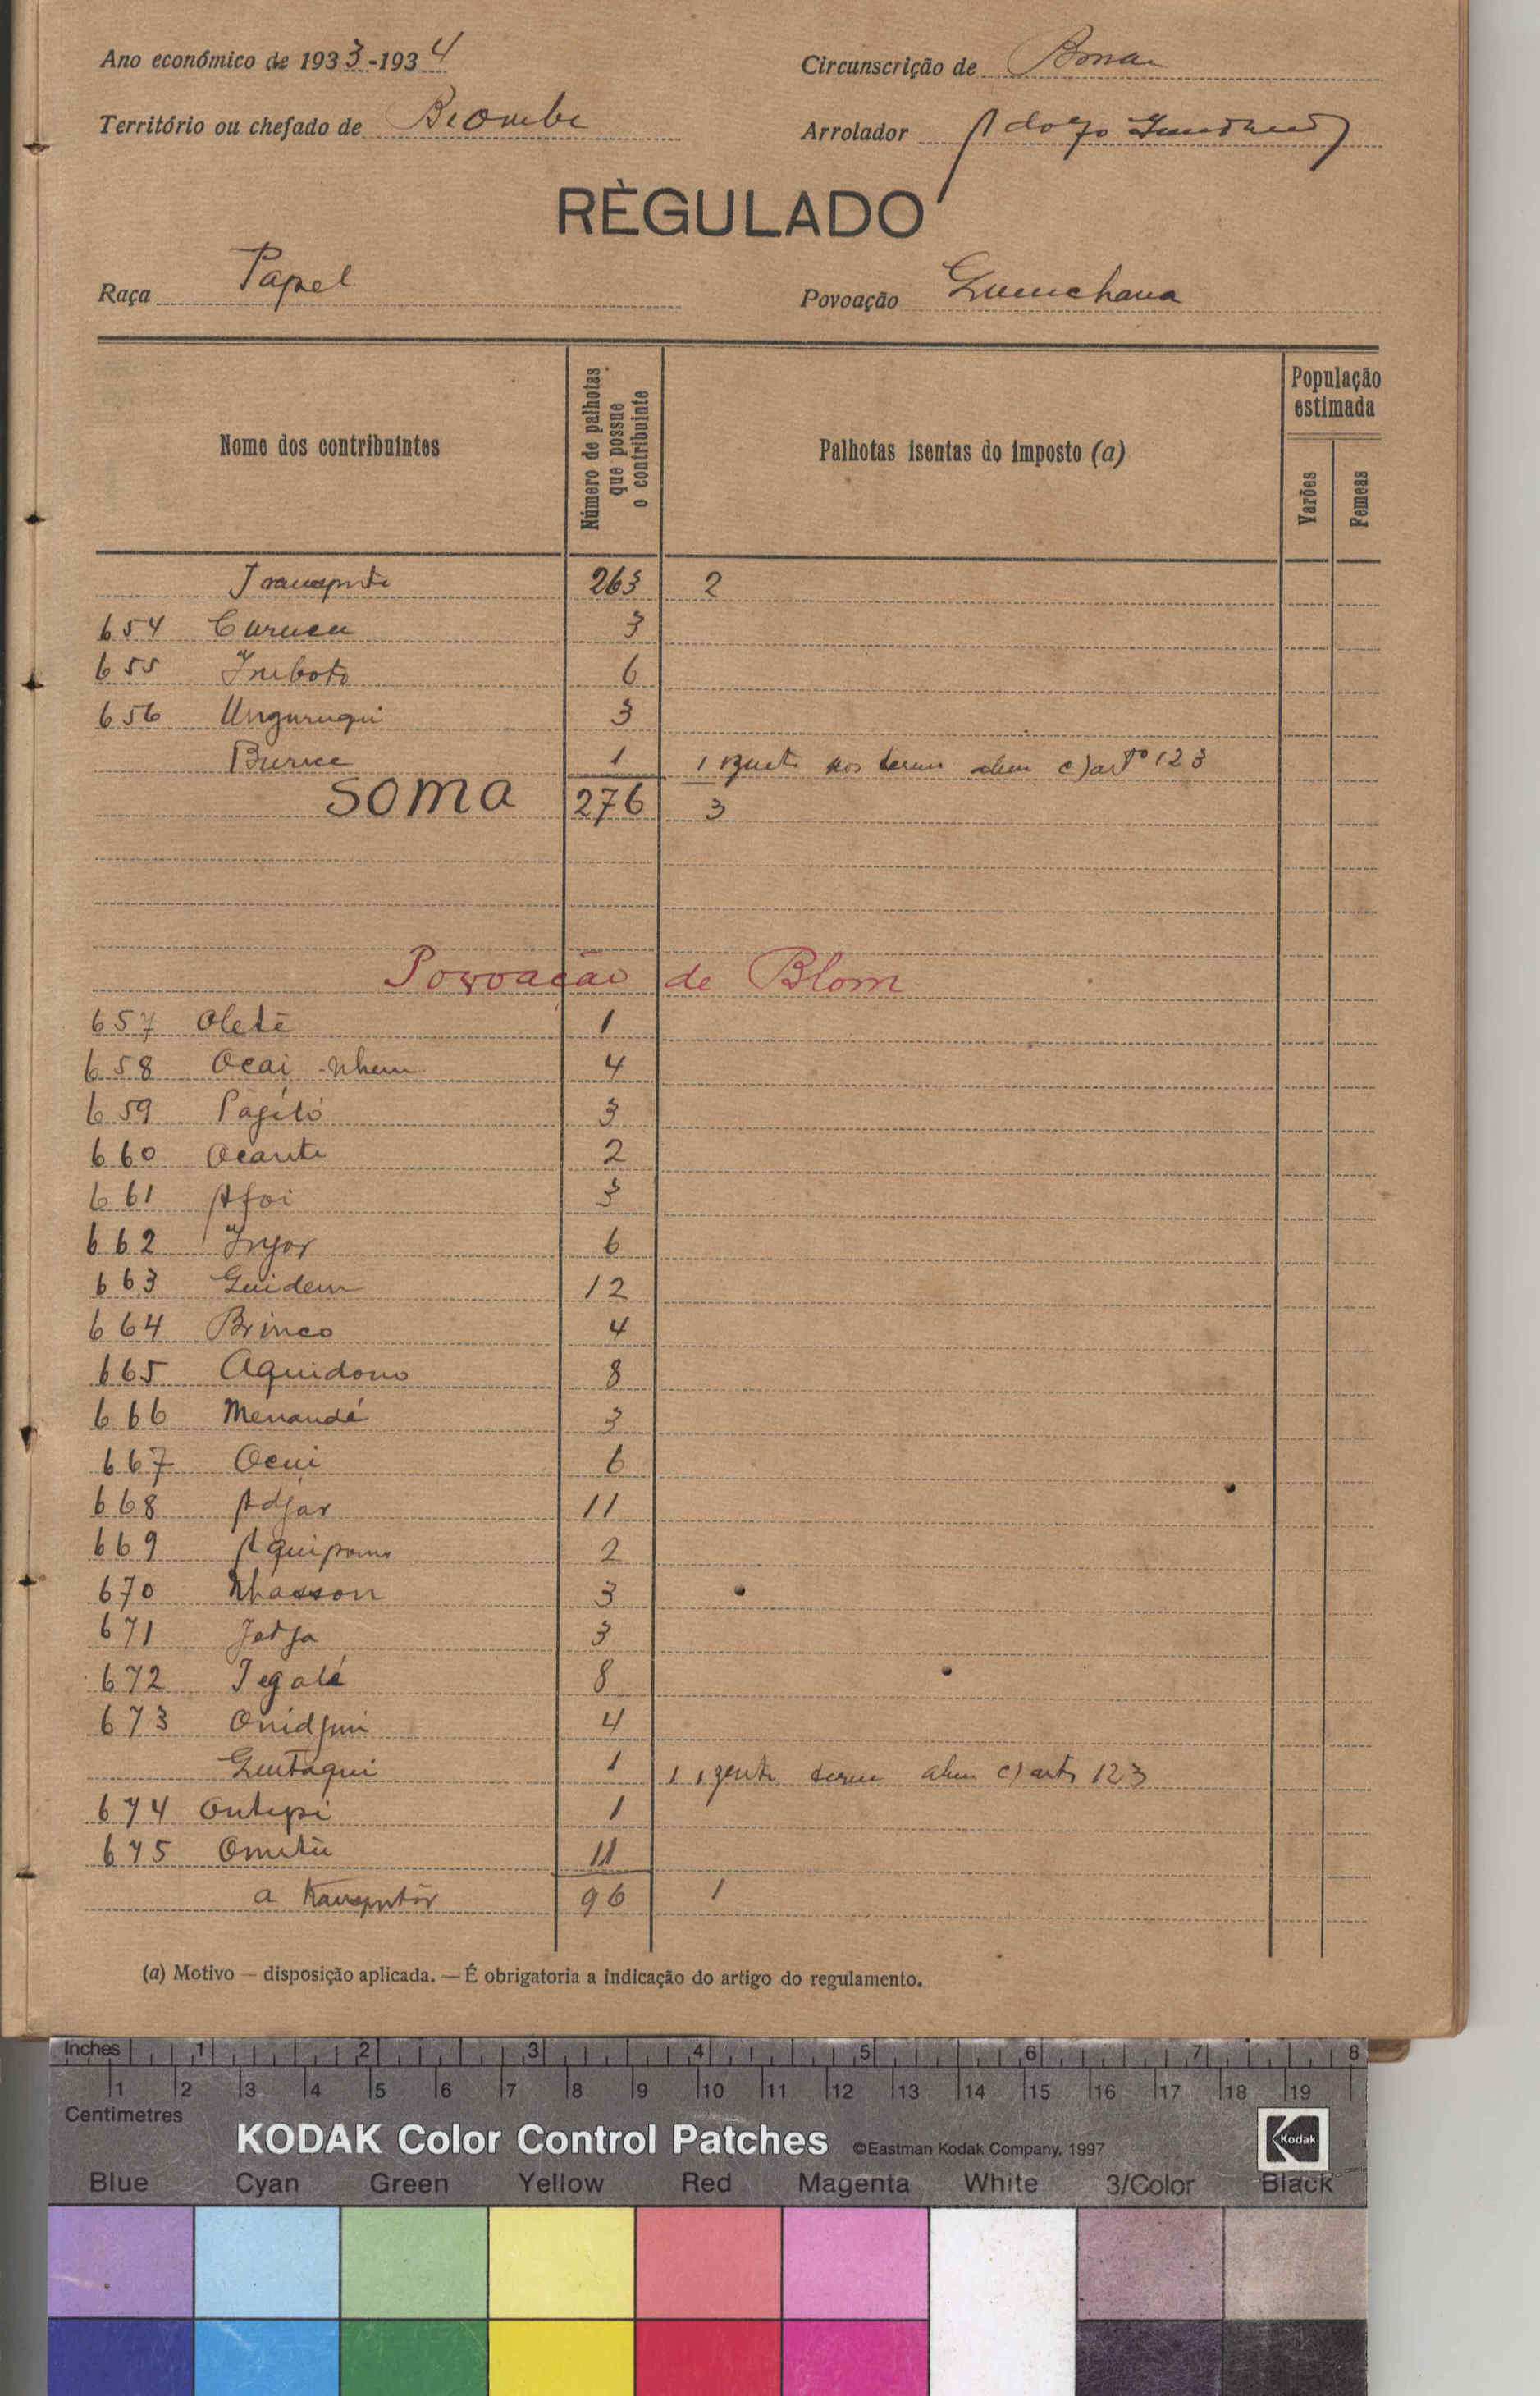 Ano económico de 1933-1934
Circunscrição de
Território ou chefado de Biombe
Arrolador Adolfo
RÈGULADO
Raça Papel
Povoação Guenchana
Nome dos contribuintes
Número de palhotas que possue o contribuinte
Palhotas isentas do imposto (a)
População estimada
Varões
Femeas
Transporte 263 2
654 Curucu 3
655 Imboto 6
656 Unguruqui 3
Burice 1 1 nos termos c) artº 123
SOMA 276 3
Povoação de Blom
657 Oletê 1
658 Ocai Nhem 4
659 Pagitó 3
660 Ocante 2
661 Afoi 3
662 Injor 6
663 Guidem 12
664 Brinco 4
665 Aquidono 8
666 Menandé 3
667 Ocui 6
668 Adjar 11
669 2
670 Nhasson 3
671 Jotja 3
672 Tegalé 8
673 Onidjuni 4
Guitaqui 1 1 c) artº 123
674 Ontepi 1
675 11
a transportar 96 1
(a) Motivo — disposição aplicada. — É obrigatoria a indicação do artigo do regulamento.
Inches 1 2 3 4 5 6 7 8
1 2 3 4 5 6 7 8 9 10 11 12 13 14 15 16 17 18 19
Centimetres
KODAK Color Control Patches ©Eastman Kodak Company, 1997 Kodak
Blue Cyan Green Yellow Red Magenta White 3/Color Black